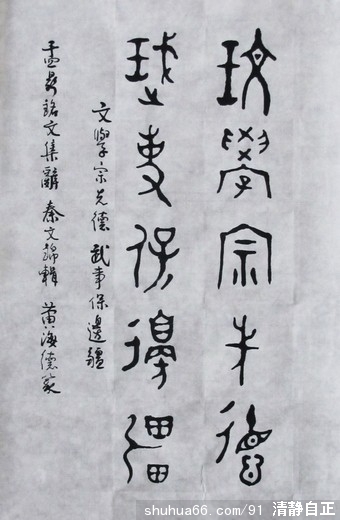 玟學宗先德
珷事保邊疆
文學宗先德 武事保邊疆
盂鼎銘文集辭 秦文錦輯 黄海德篆
shuhua66.com/91 清静自正